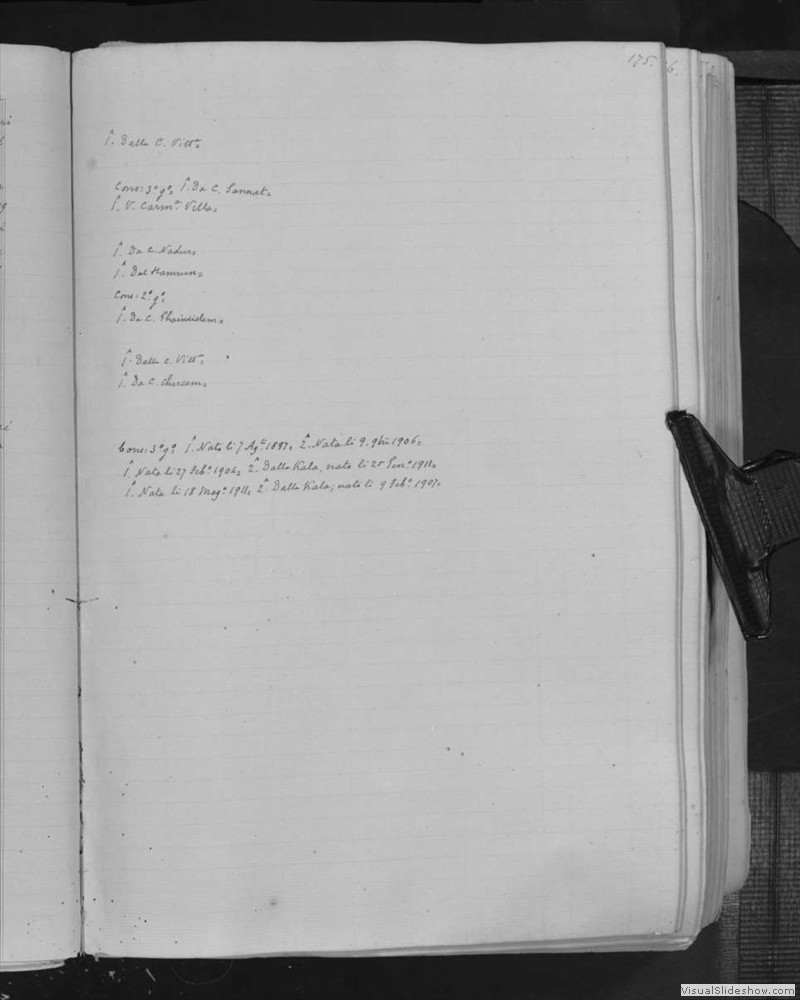 175. 6.
1ª. Dalla C. Vittª.
Cons: 3º gº. 1ª. Da C. Sannat.
1ª. V. Carmª. Villa.
1ª. Da C. Nadur.
1ª. Dal Hamrun.
Cons: 2º. gº.
1ª. Da C. Ghainsielem.
1ª. Dalla C. Vittª.
1ª. Da C. Chercem.
Cons: 3º gº. 1ª. Nato li 7 Agº. 1897. 2ª. Nata li 9. 9bre 1906.
1ª. Nato li 27 Febº. 1904. 2ª. Dalla Kala, nata li 25 Genº. 1911.
1ª. Nata li 18 Magº. 1911. 2ª. Dalla Kala, nato li 9 Febº. 1907.
VisualSlideshow.com